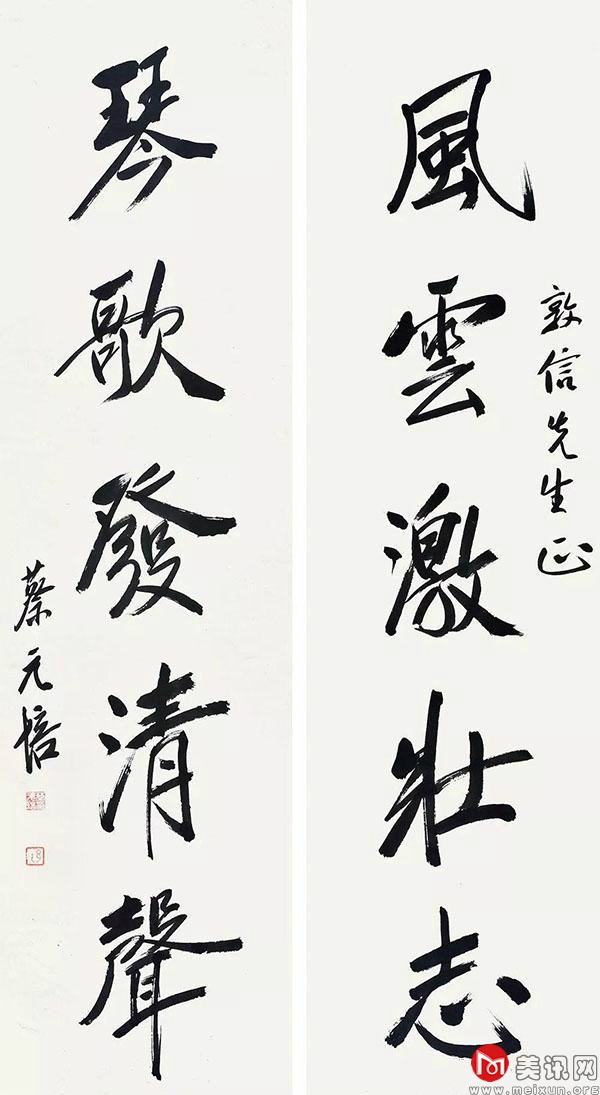 敦信先生正
風雲激壯志
琴歌發清聲
蔡元培
美讯网
www.meixun.org